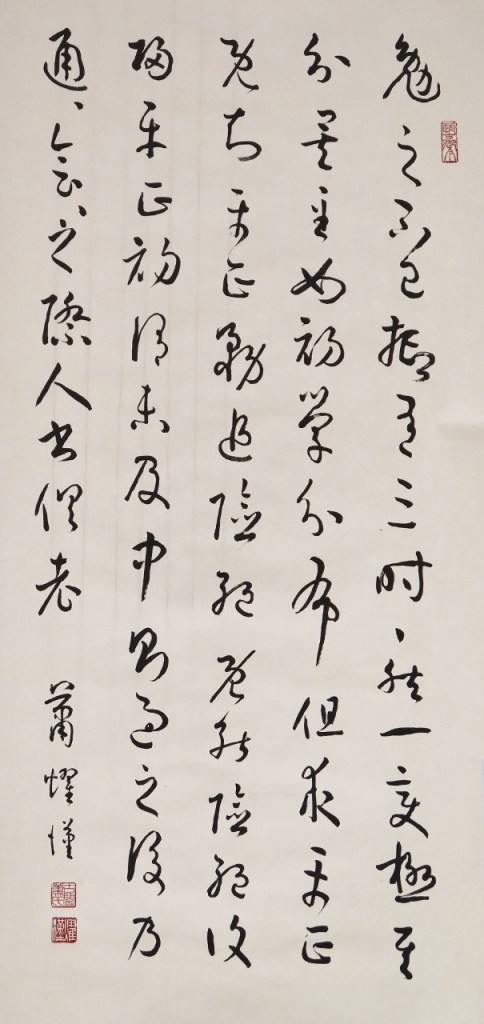 勉之不已抑有三時、然一變極其
分矣至如初學分布但求平正
既知平正務追險絕既能險絕復
歸平正初謂未及中則過之後乃
通、會、之際人書俱老 蕭燿漢